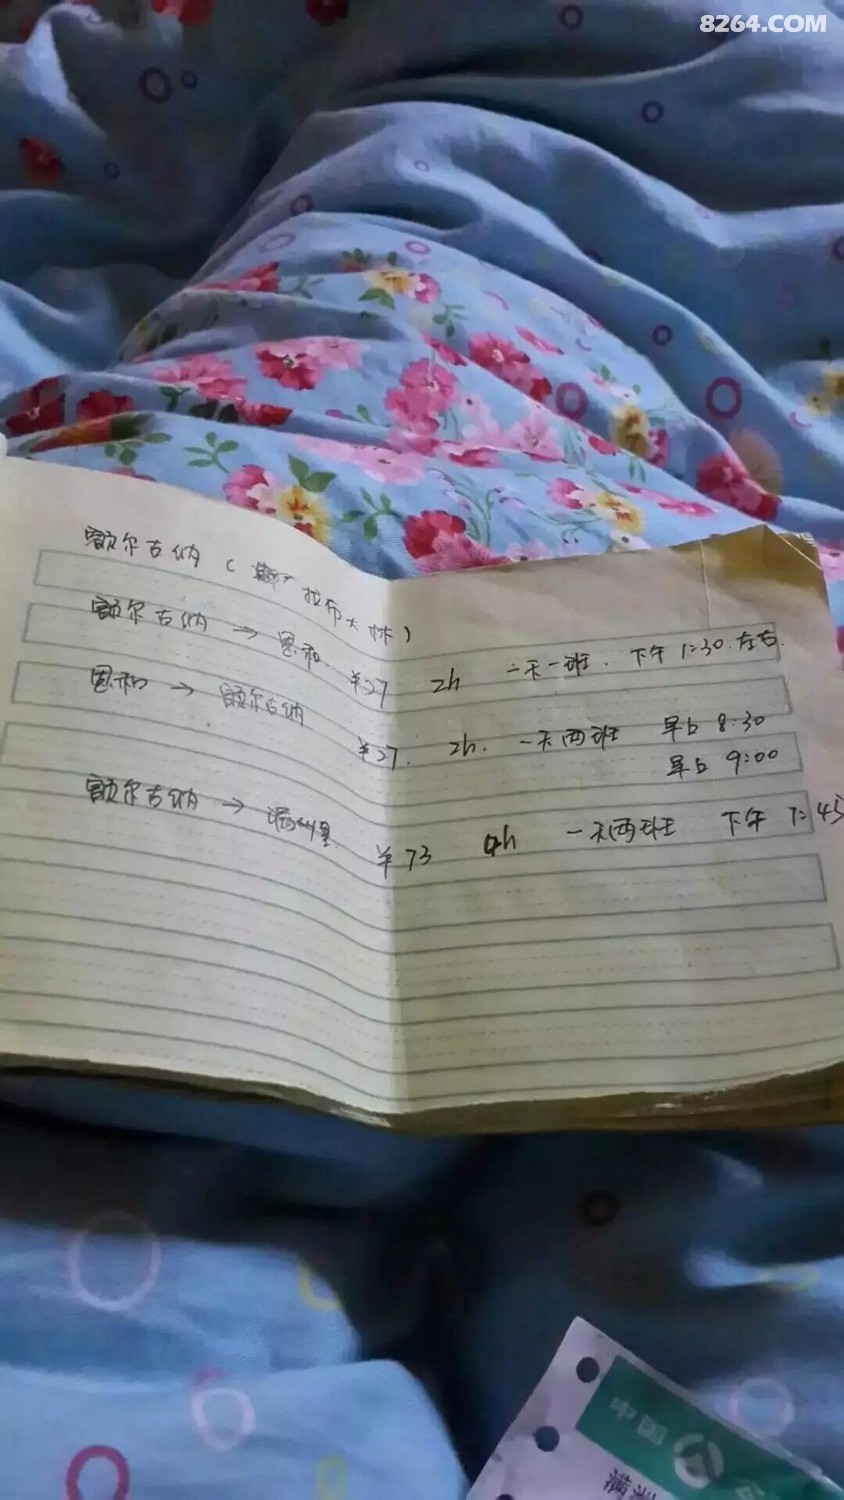 8264.COM
额尔古纳 ( 拉布大林)
额尔古纳 → 恩和. ¥27 2h 一天一班. 下午 1:30.左右.
恩和 → 额尔古纳 ¥27. 2h. 一天两班 早上 8:30
早上 9:00
额尔古纳 → 满州里 ¥73 4h 一天两班 下午 1:45
中国
满洲